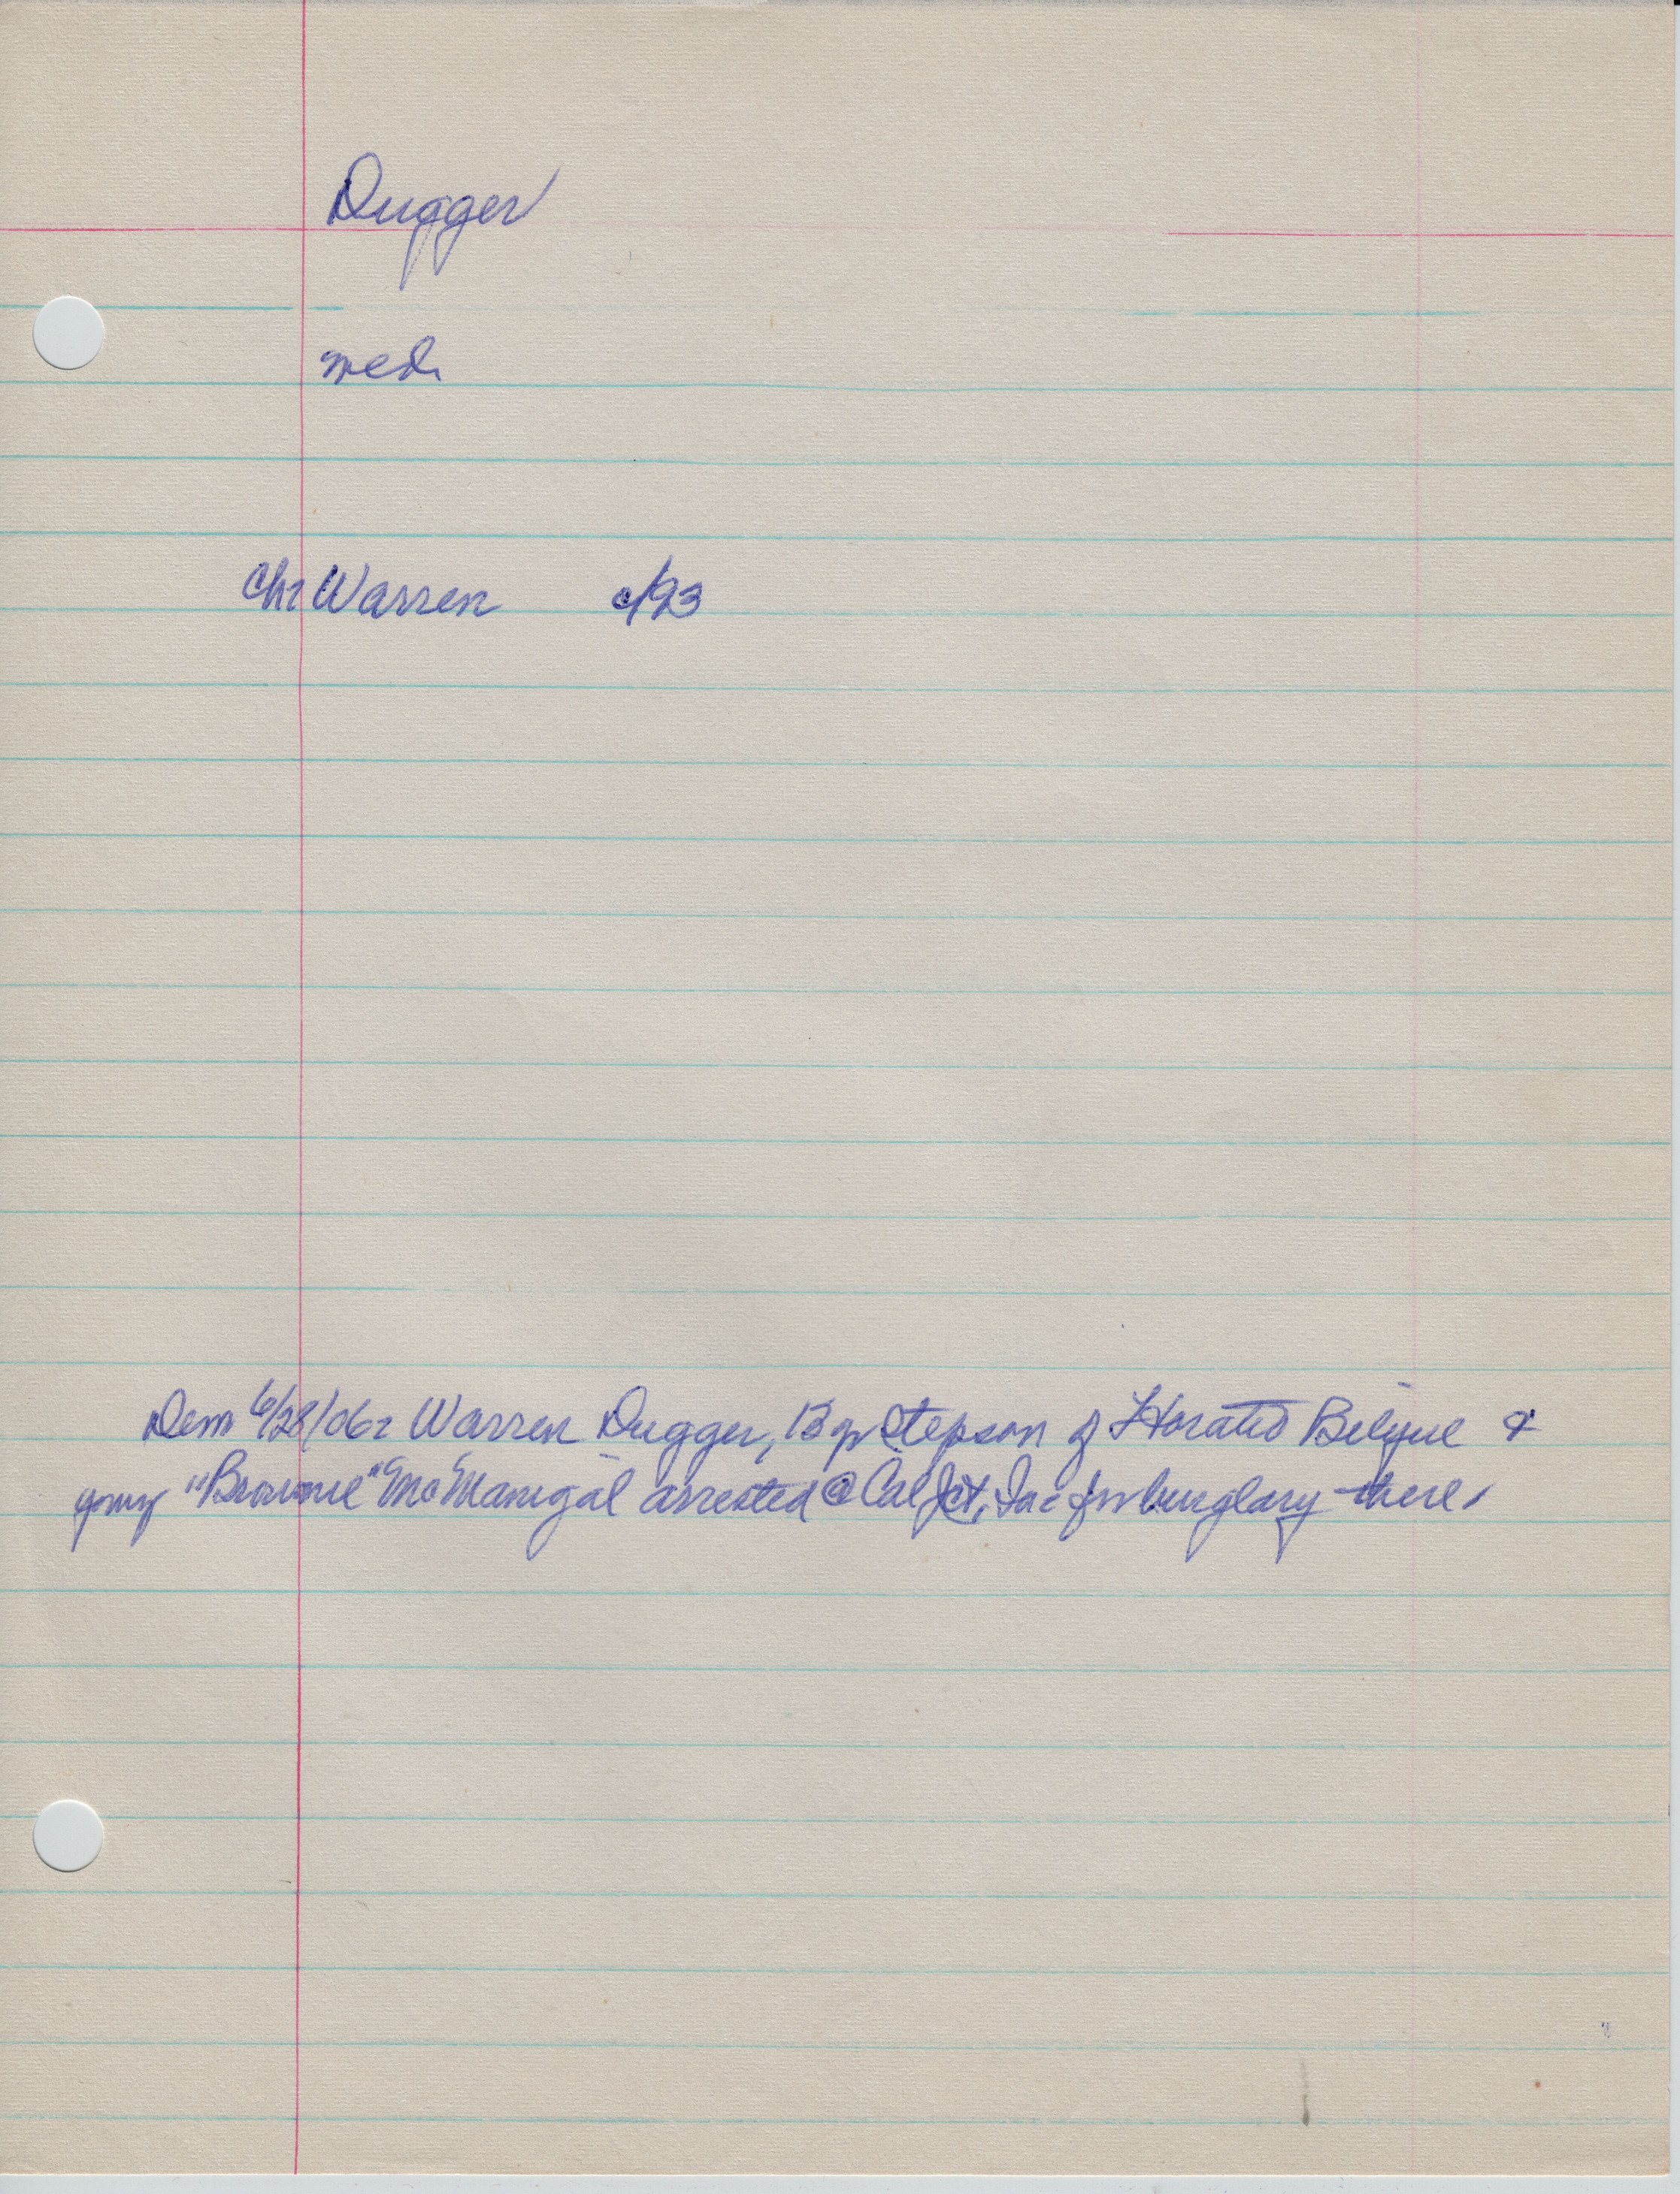 Dugger
med.
Ch: Warren c/93
Dem 6/28/06: Warren Dugger, 13 yr stepson of Horatio Belyue &
young "Brownie" McManigal arrested @ Cal Jct, Ia: for burglary there.